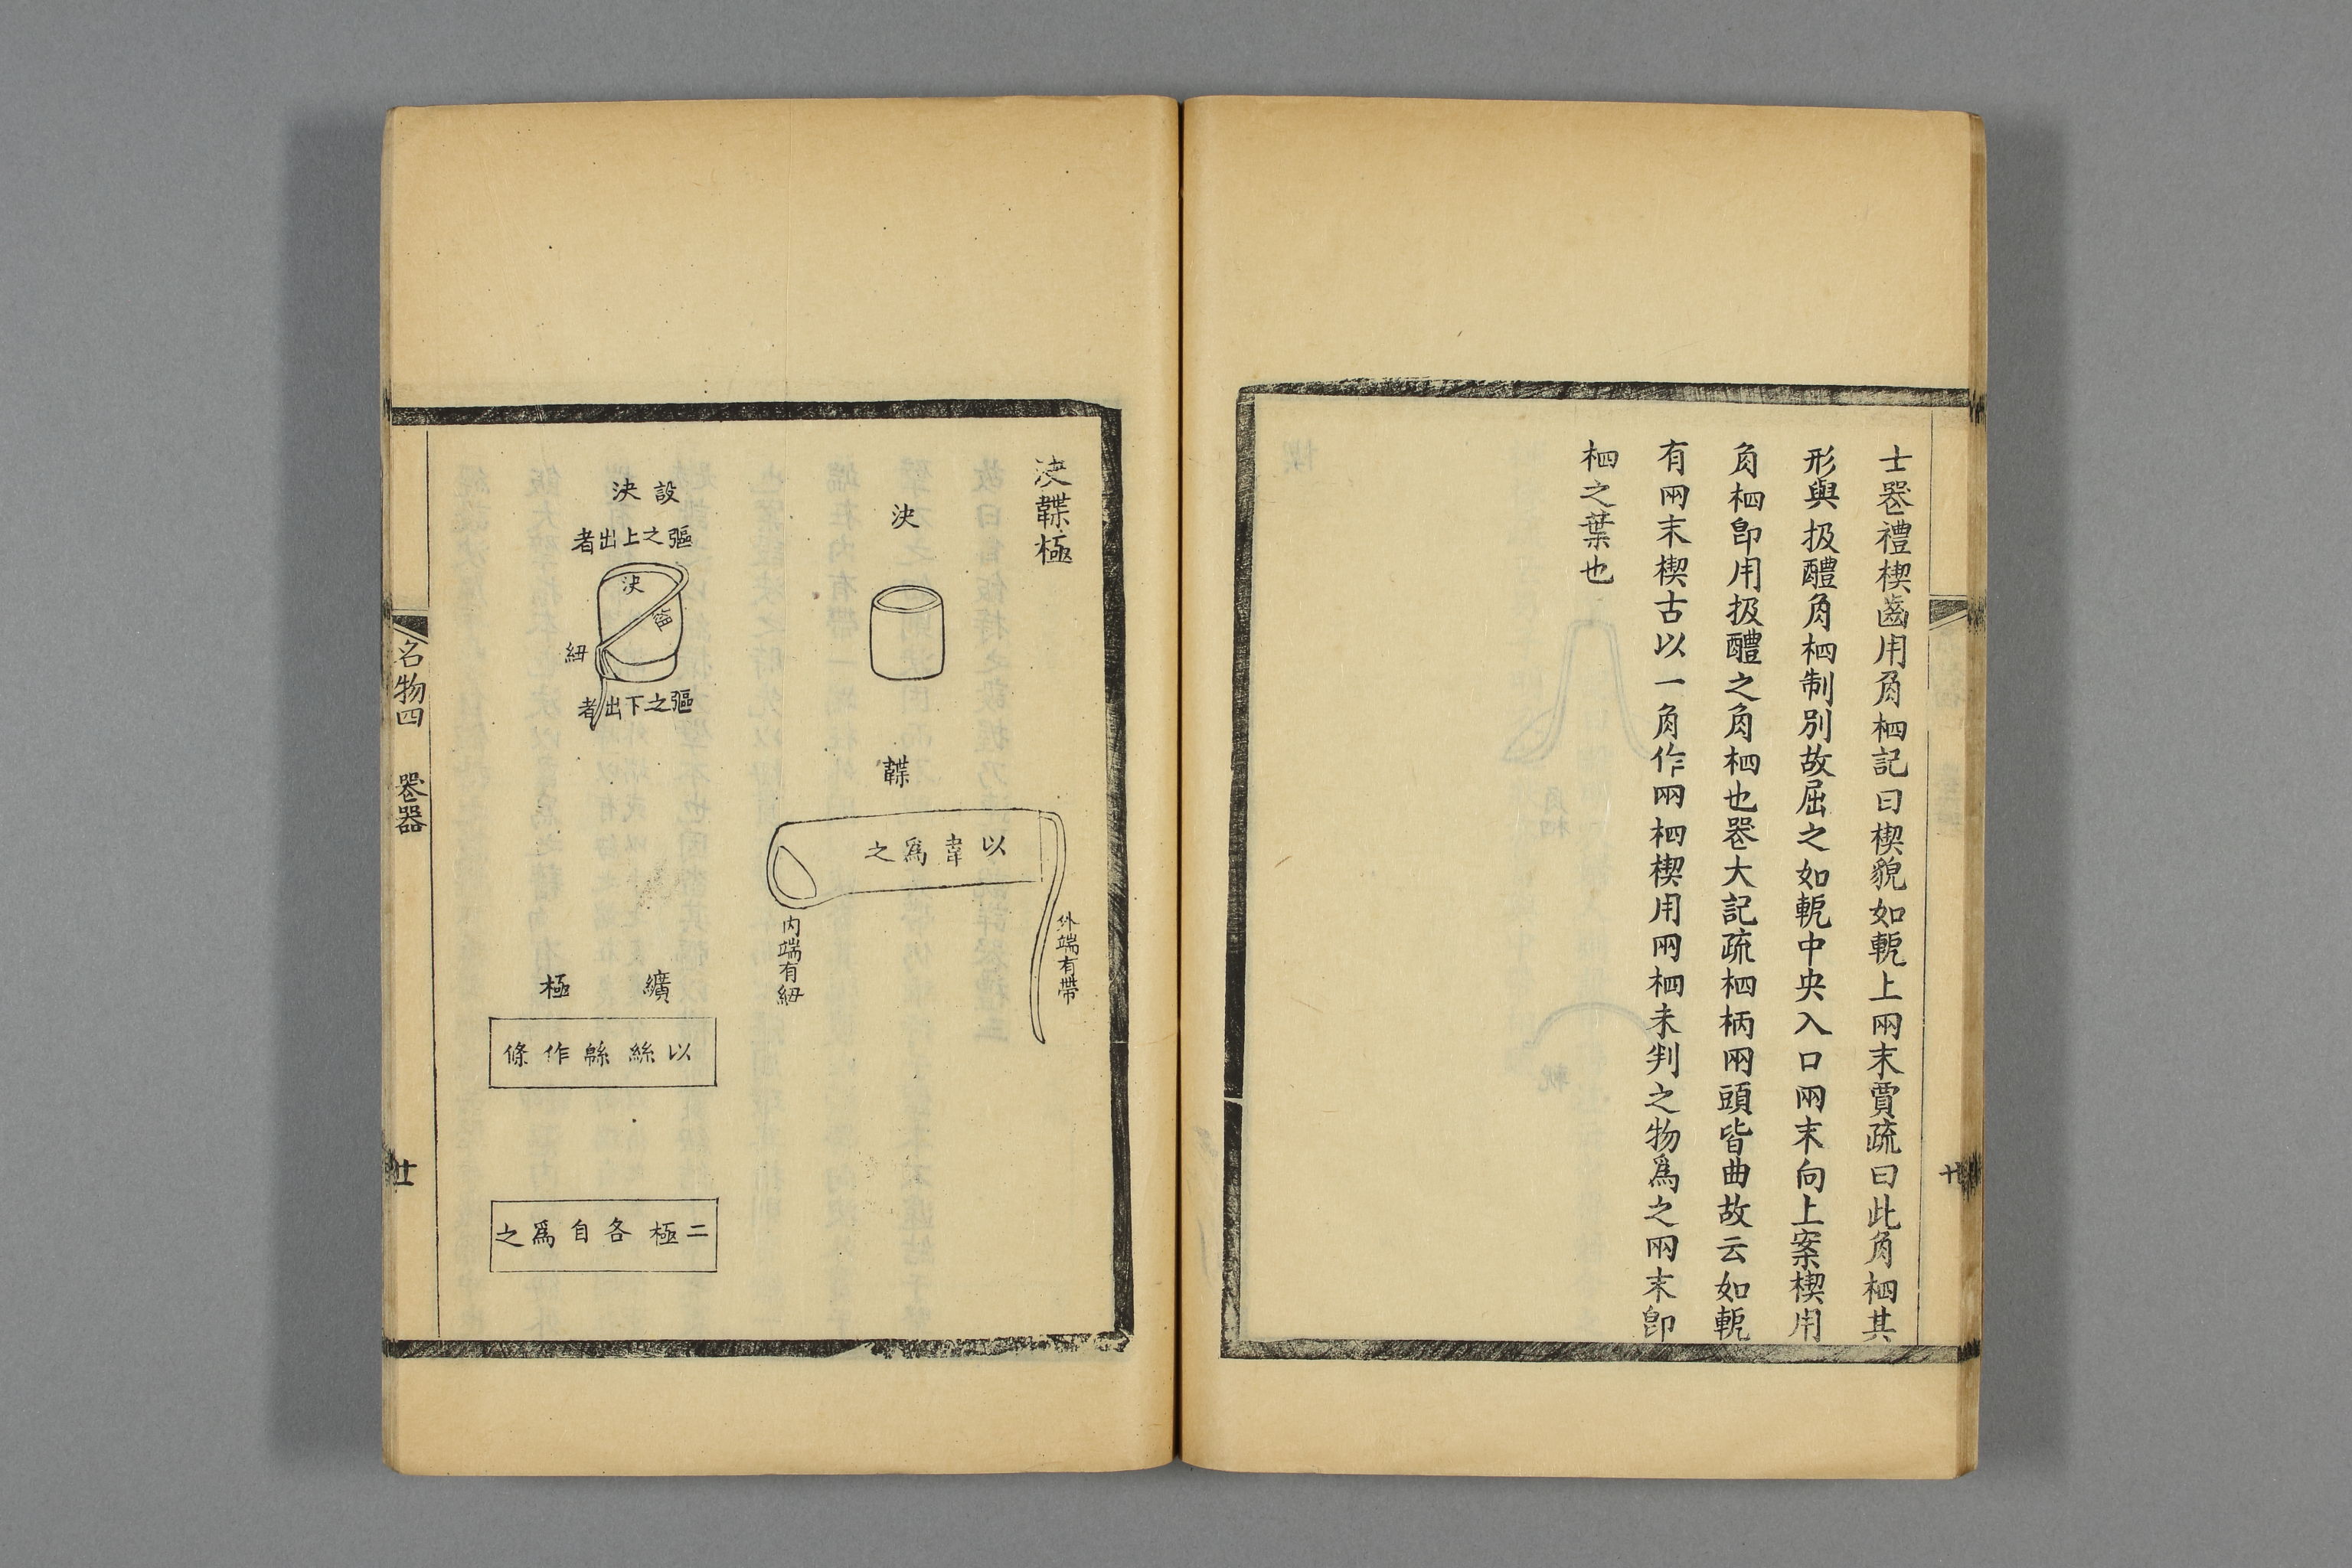 士喪禮楔齒用角柶記曰楔貌如軶上兩末賈疏曰此角柶其
形與扱醴角柶制別故屈之如軶中央入口兩末向上案楔用
角柶卽用扱醴之角柶也喪大記疏柶柄兩頭皆曲故云如軶
有兩末楔古以一角作兩柶楔用兩柶未判之物爲之兩末卽
柶之葉也
廿
決韘極
決
韘
以韋爲之
外端有帶
內端有紐
設決
彄之上出者
決
紐
彄之下出者
纊極
以絲緜作條
二極各自爲之
名物四 喪器
廿一